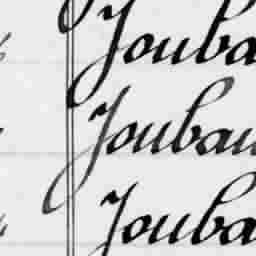 Jouba
Joubau
Jouba